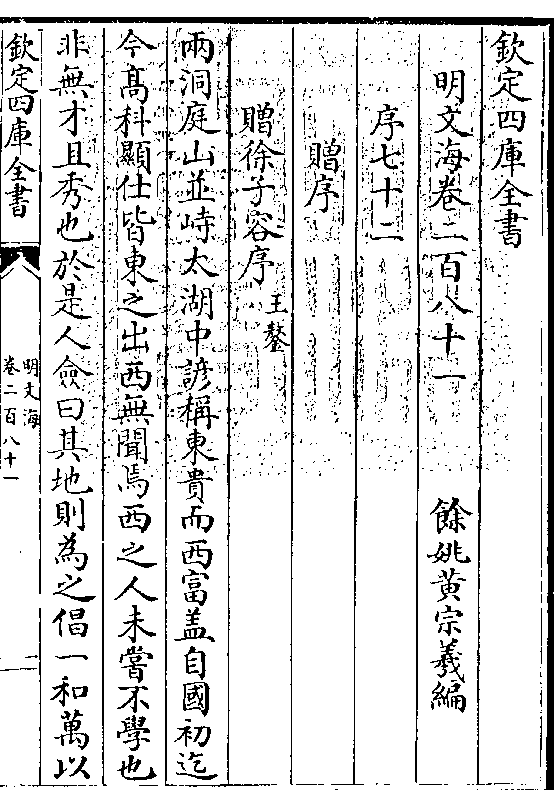 欽定四庫全書
明文海卷二百八十一　餘姚黄宗羲編
序七十二
贈序
贈徐子容序　王鏊
兩洞庭山並峙太湖中諺稱東貴而西富盖自國初迄
今髙科顯仕皆東之出西無聞焉西之人未嘗不學也
非無才且秀也於是人僉曰其地則為之倡一和萬以
欽定四庫全書
明文海
卷二百八十一
一